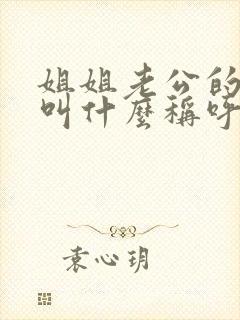 姐姐老公的
叫什麼稱呼
袁心玥